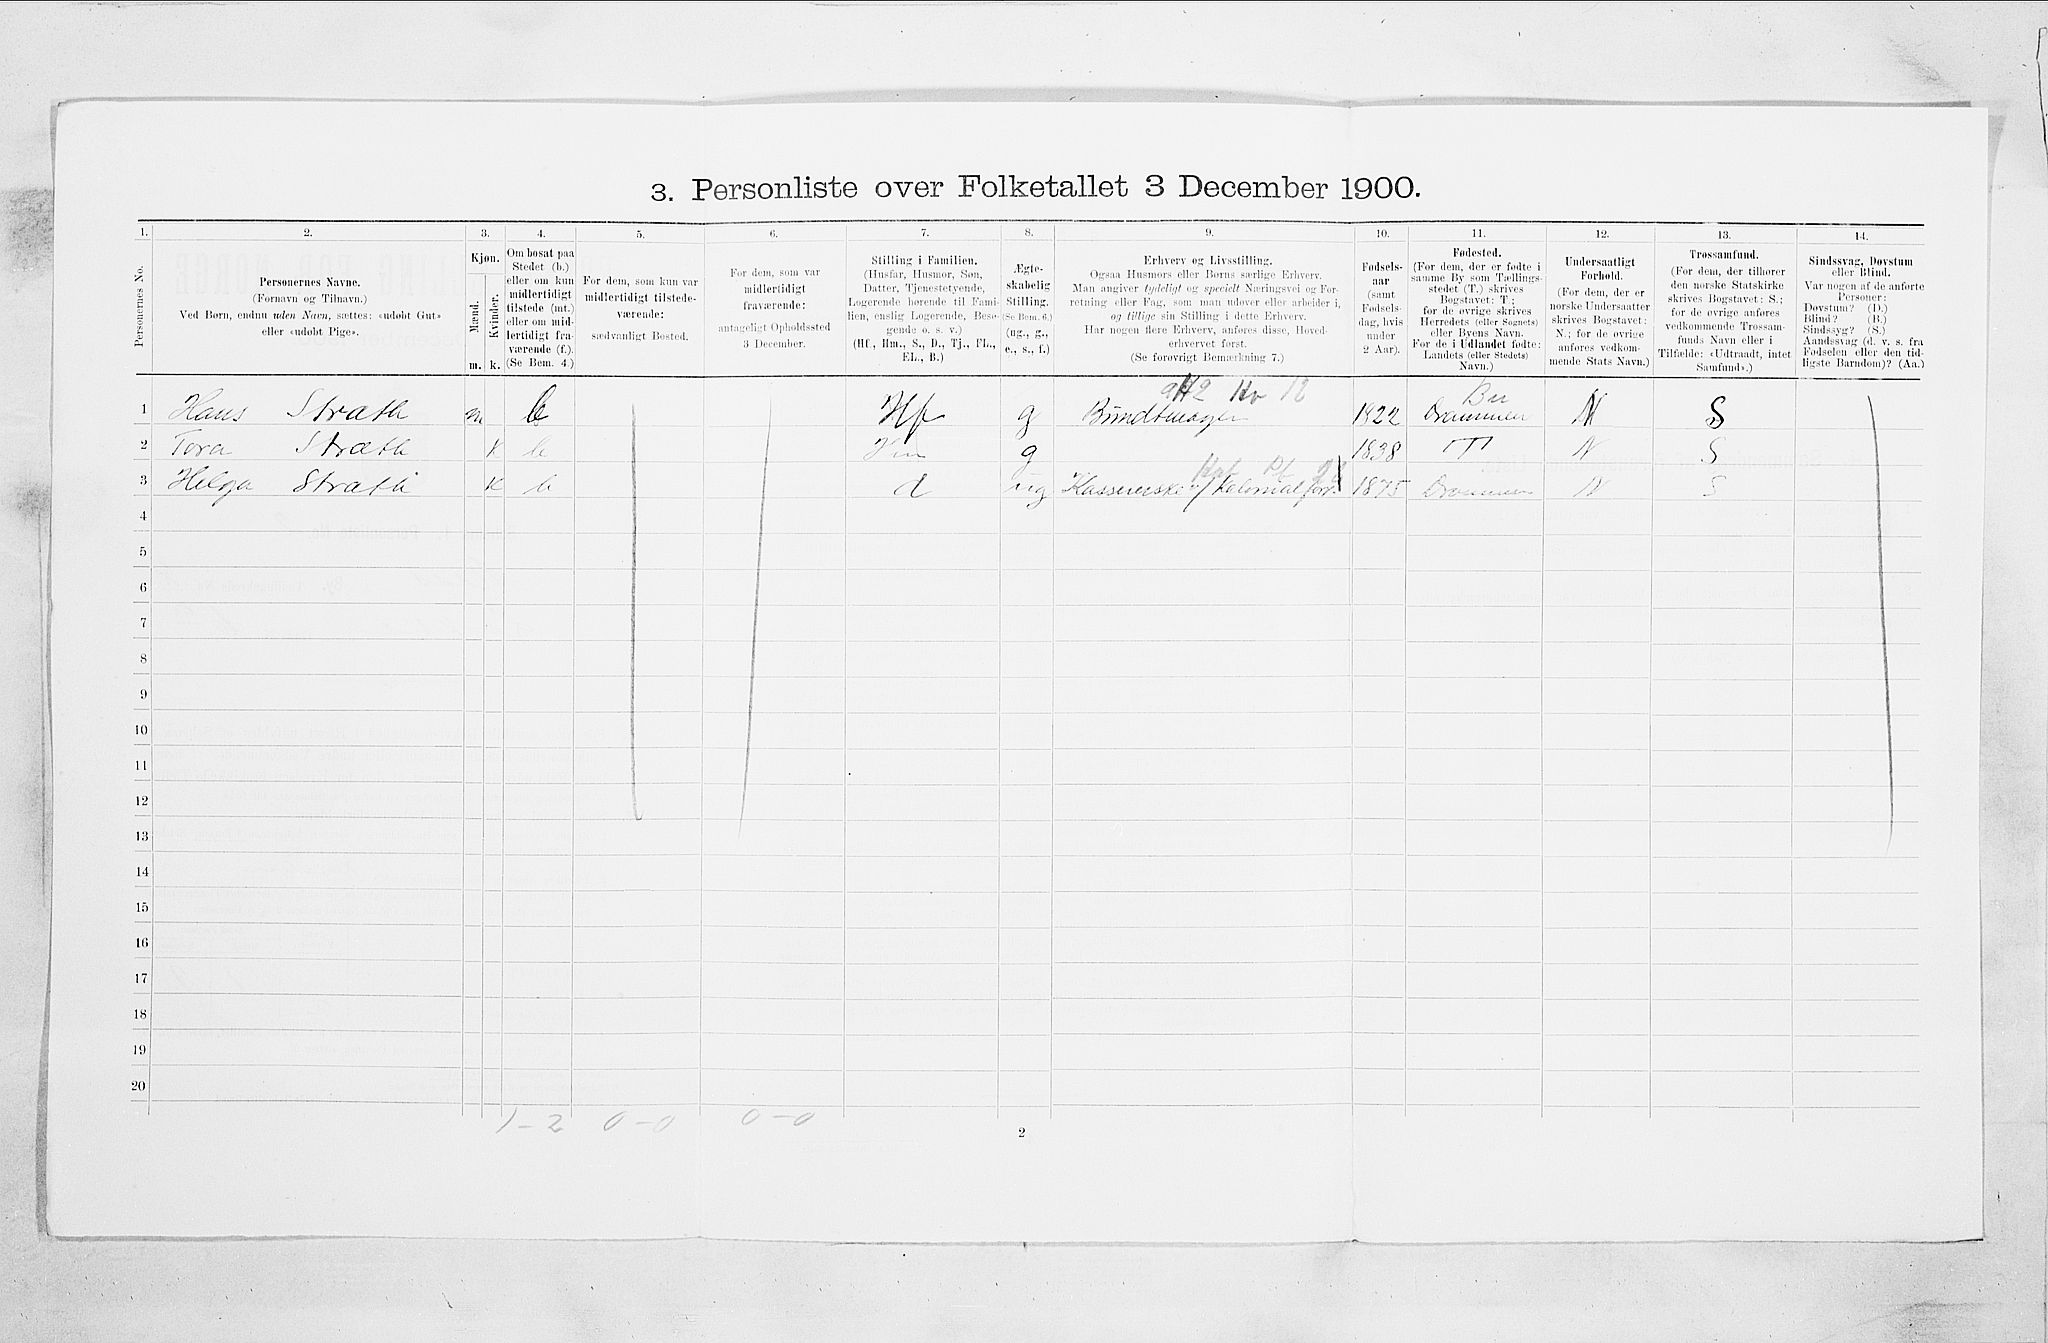 3. Personliste over Folketallet 3 December 1900.
1. 2. 3. 4. 5. 6. 7. 8. 9. 10. 11. 12. 13. 14.
Personernes No.
Personernes Navne.
(Fornavn og Tilnavn.)
Ved Børn, endnu uden Navn, sættes: «udøbt Gut»
eller «udøbt Pige».
Kjøn.
Mænd.
Kvinder.
m. k.
Om bosat paa
Stedet (b.)
eller om kun
midlertidigt
tilstede (mt.)
eller om mid-
lertidigt fra-
værende (f.).
(Se Bem. 4.)
For dem, som kun var
midlertidigt tilstede-
værende:
sædvanligt Bosted.
For dem, som var
midlertidigt
fraværende:
antageligt Opholdssted
3 December.
Stilling i Familien.
(Husfar, Husmor, Søn,
Datter, Tjenestetyende,
Logerende hørende til Fami-
lien, enslig Logerende, Besø-
gende o. s. v.)
(Hf., Hm., S., D., Tj., FL.,
EL., B.)
Ægte-
skabelig
Stilling.
(Se Bem. 6.)
(ug., g.,
e., s., f.)
Erhverv og Livsstilling.
Ogsaa Husmors eller Børns særlige Erhverv.
Man angiver tydeligt og specielt Næringsvei og For-
retning eller Fag, som man udøver eller arbeider i,
og tillige sin Stilling i dette Erhverv.
Har nogen flere Erhverv, anføres disse, Hoved-
erhvervet først.
(Se forøvrigt Bemærkning 7.)
Fødsels-
aar
(samt
Fødsels-
dag, hvis
under
2 Aar).
Fødested.
(For dem, der er fødte i
samme By som Tællings-
stedet (T.) skrives
Bogstavet: T.;
for de øvrige skrives
Herredets (eller Sognets)
eller Byens Navn.
For de i Udlandet fødte:
Landets (eller Stedets)
Navn.)
Undersaatligt
Forhold.
(For dem, der er
norske Undersaatter
skrives Bogstavet:
N.; for de øvrige
anføres vedkom-
mende Stats Navn.)
Trossamfund.
(For dem, der tilhører
den norske Statskirke
skrives Bogstavet: S.;
for de øvrige anføres
vedkommende Trossam-
funds Navn eller i
Tilfælde: «Udtraadt, intet
Samfund».)
Sindssvag, Døvstum
eller Blind.
Var nogen af de anførte
Personer:
Døvstum? (D.)
Blind? (B.)
Sindssyg? (S.)
Aandssvag (d. v. s. fra
Fødselen eller den tid-
ligste Barndom)? (Aa.)
1 Hans Stræth m b Hf g Bundtmager 1822 Drammen N S
2 Tora Stræth k b Hm g 1838 T N S
3 Helga Stræth k b d ug Kassererske v/ Kolonialforr. 1875 Drammen N S
4
5
6
7
8
9
10
11
12
13
14
15
16
17
18
19
20
1-2 0-0 0-0
2